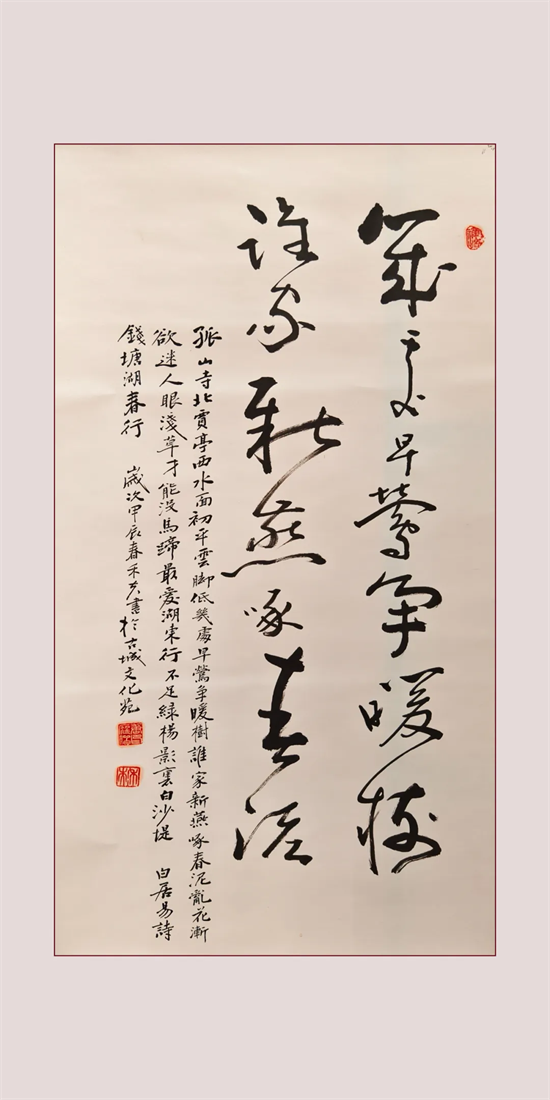 幾處早鶯爭暖樹
誰家新燕啄春泥
孤山寺北賈亭西水面初平雲脚低幾處早鶯争暖樹誰家新燕啄春泥亂花漸
欲迷人眼淺草才能没馬蹄最愛湖東行不足緑楊影裏白沙堤 白居易詩
錢塘湖春行 歲次甲辰春禾夫書於古城文化苑